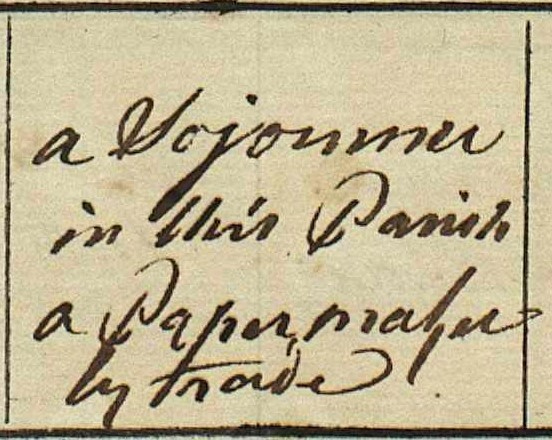 a Sojourner
in this Parish
a Paper maker
by trade